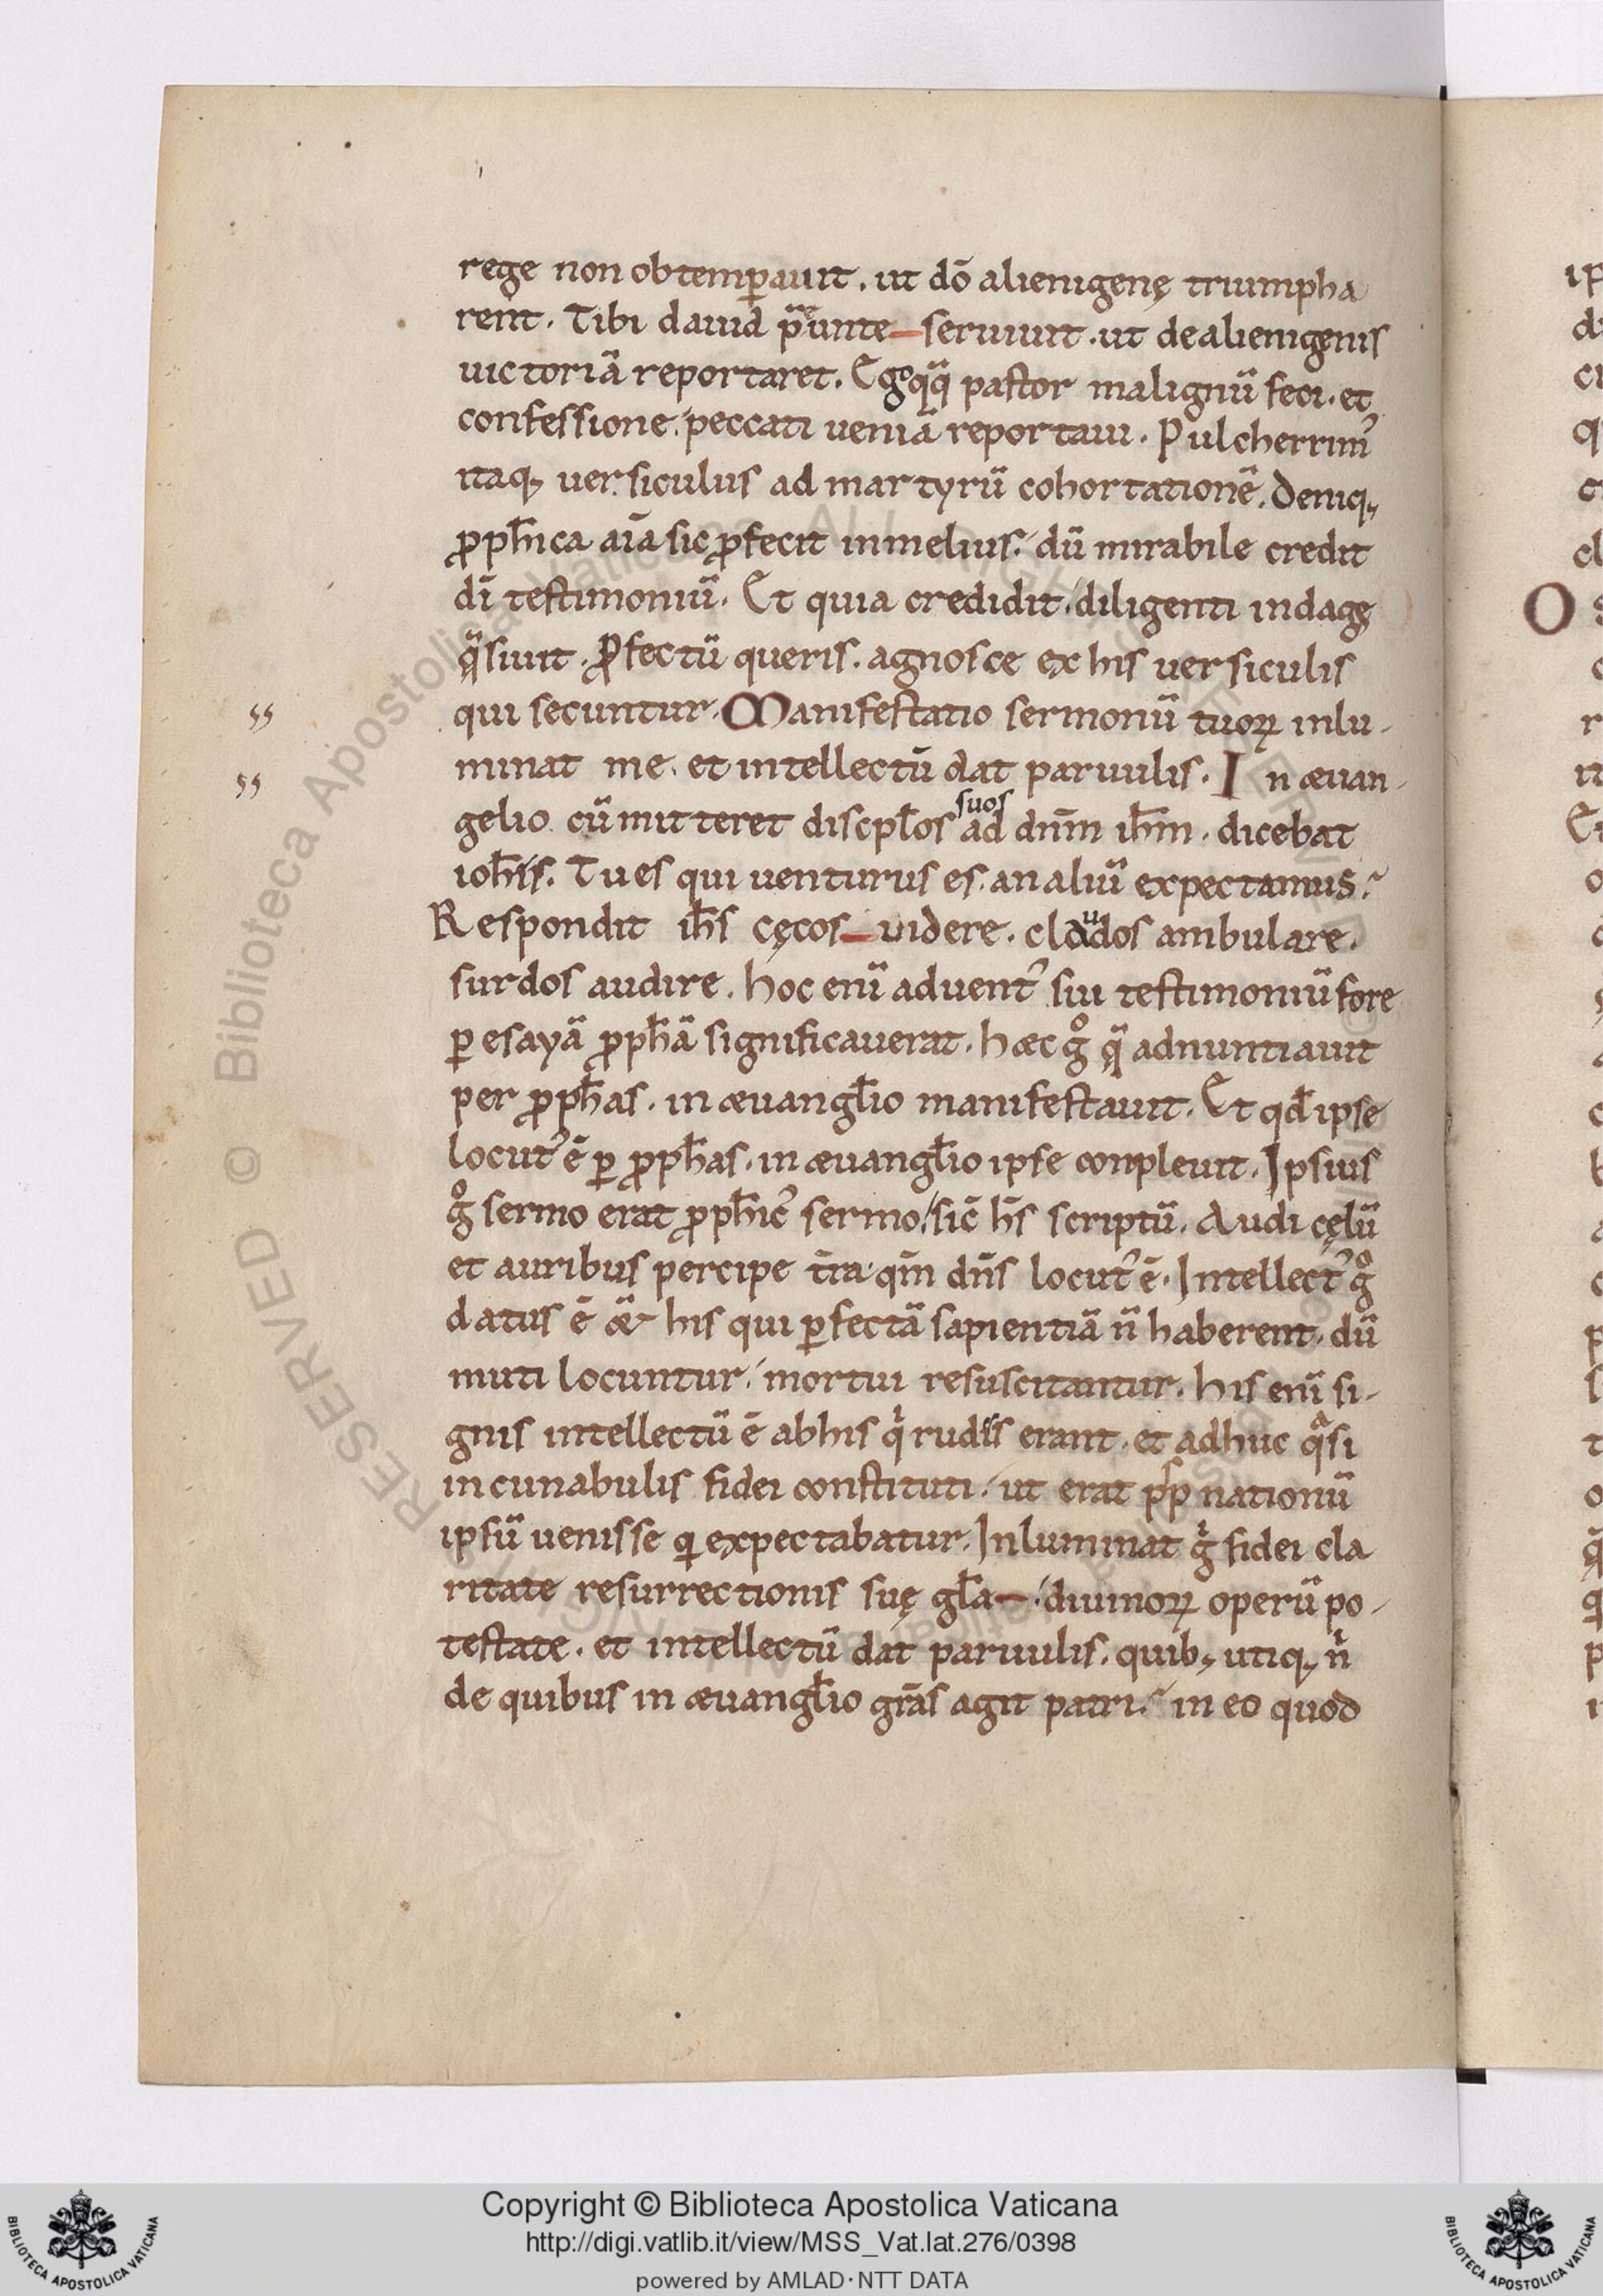 rege non obtemꝑauit. ut dō alienigenę triumpha
rent. Tibi dauid p̄eunte seruiuit. ut de alienigenis
uictoriā reportaret. Ego q̄q̄ pastor malignū feci. et
confessione peccati ueniā reportaui. Pulcherrim᾿
itaq; uersiculus ad martyrū cohortationē. Deniq;
ꝓph̄ica aīa sic ꝓfecit in melius. dū mirabile credit
dī testimoniū. Et quia credidit. diligenti indagę
q̄siuit. Ꝓfectū queris. agnosce ex his uersiculis
qui secuntur. Manifestatio sermonū tuoꝝ inlu-
minat me. et intellectū dat paruulis. In æuan-
gelio cū mitteret discpl̄os suos ad dn̄m ih̄m. dicebat
ioh̄is. Tu es qui uenturus es. an aliū expectamus?
Respondit ih̄s cęcos uidere. claudos ambulare.
surdos audire. hoc enī aduent᾿ sui testimoniū fore
ꝑ esayā ꝓph̄ā significauerat. hæc gͦ q̄ adnuntiauit
per ꝓph̄as. in æuangl̄io manifestauit. Et qd̄ ipse
locut᾿ ē ꝑ ꝓph̄as. in æuangl̄io ipse conpleuit. Ipsius
gͦ sermo erat ꝓph̄ic᾿ sermo. sic̄ h̄s scriptū. Audi cęlū
et auribus percipe t̄ra. qm̄ dn̄s locut᾿ ē. Intellect᾿ gͦ
datus ē his qui ꝑfectā sapientiā n̄ haberent. dū
muti locuntur. mortui resuscitantur. his enī si-
gnis intellectū ē ab his qⁱ rudiis erant. et adhuc qᵃsi
in cunabulis fidei constituti. ut erat nationū
ipsū uenisse qi expectabatur. Inluminat gͥ fidei cla
ritate resurrectionis suę gl̄a. diuinoꝝ operū po-
testate. et intellectū dat paruulis. quib; utiq; nͥ
de quibus in æuangl̄io grās agit patri. in eo quod
Copyright © Biblioteca Apostolica Vaticana
http://digi.vatlib.it/view/MSS_Vat.lat.276/0398
powered by AMLAD·NTT DATA